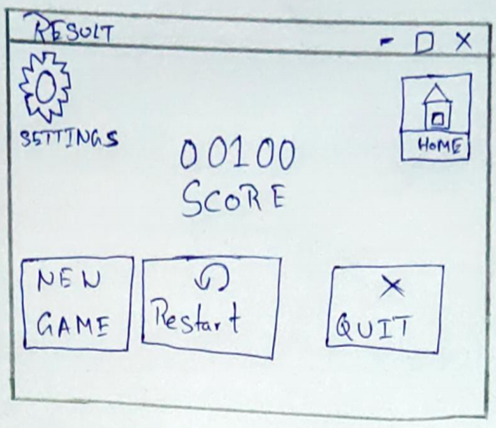 RESULT
SETTINGS
HOME
00100
SCORE
NEW
GAME
Restart
QUIT